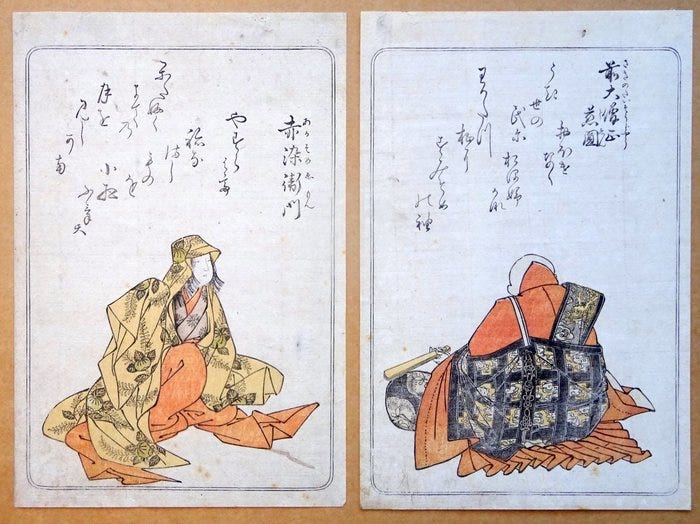 さきのだいそうじやう
前大僧正
慈圓
おほけなく
うき世の
民尓おほふかな
わかたつ
杣に
すみそめ
の袖
あかそめゑもん
赤染衛門
やすらはて
ねなまし
ものを
小夜ふけて
かたふく
まての
月を
見し
可南